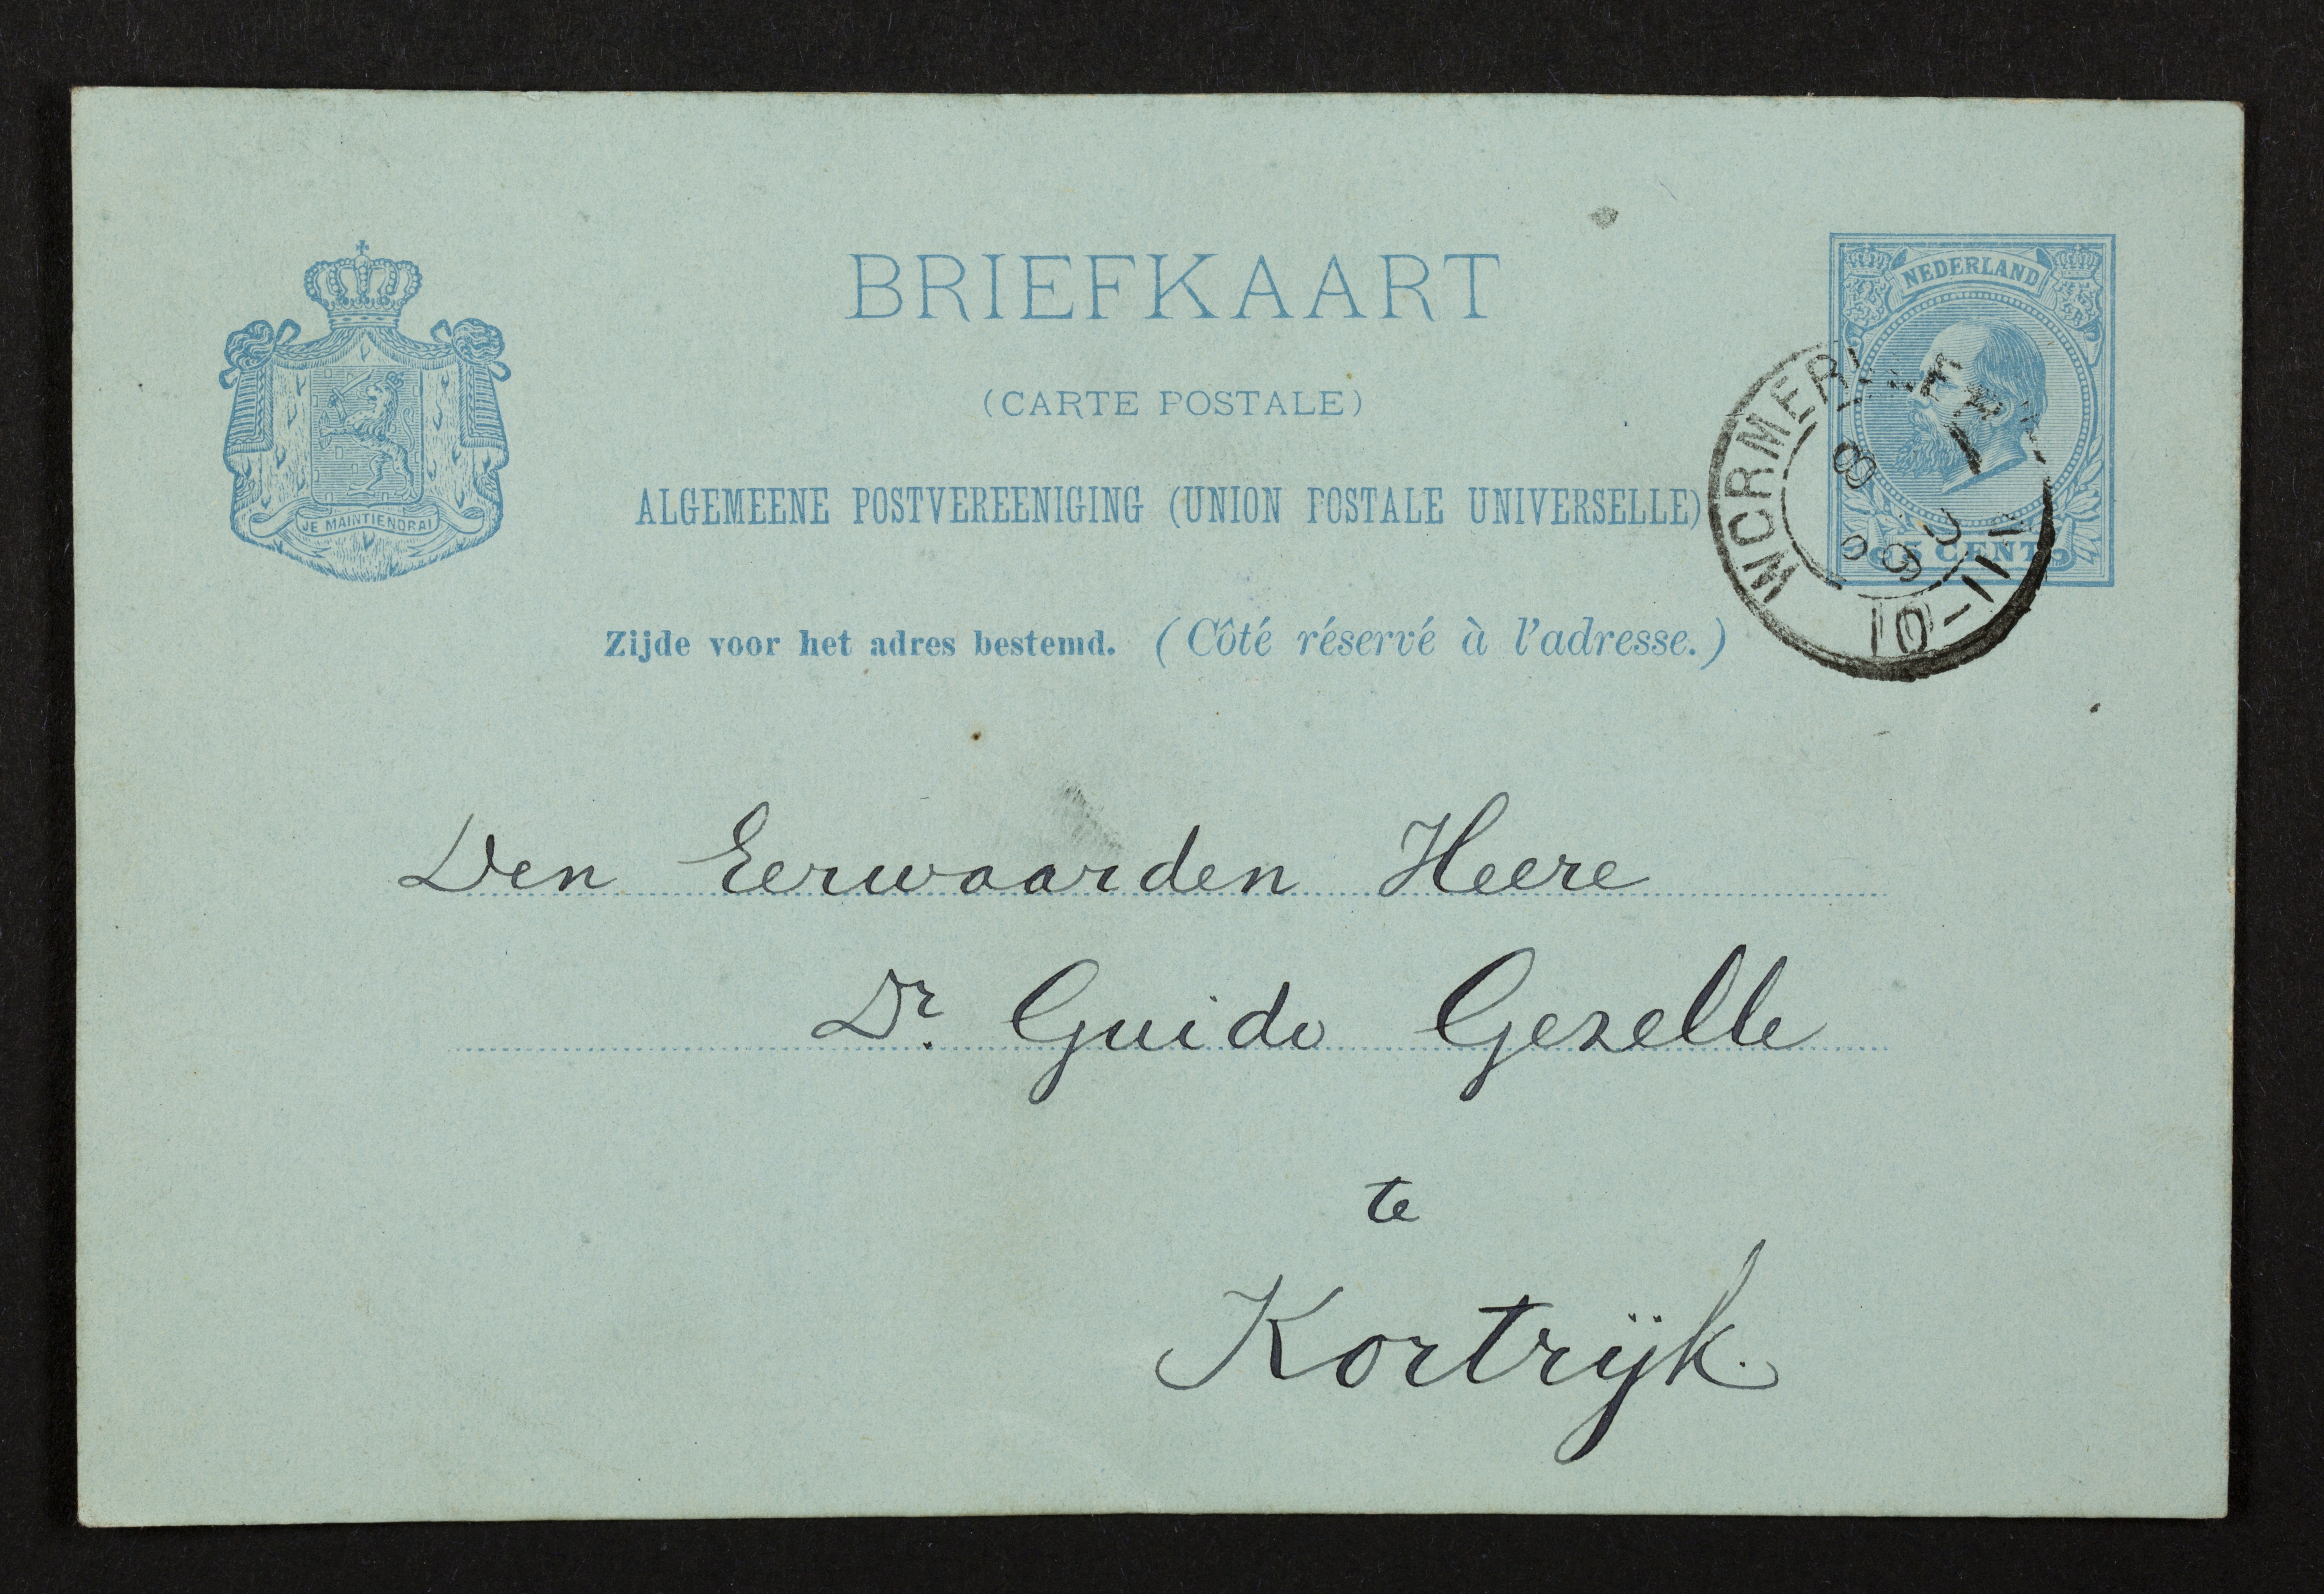 BRIEFKAART
(CARTE POSTALE)
ALGEMEENE POSTVEREENIGING (UNION POSTALE UNIVERSELLE)
Zijde voor het adres bestemd. (Côté réservé à l'adresse.)
JE MAINTIENDRAI
NEDERLAND
5 CENT
WORMERVEER
10-11V
Den Eerwaarden Heere
Dr. Guido Gezelle
te
Kortrijk.